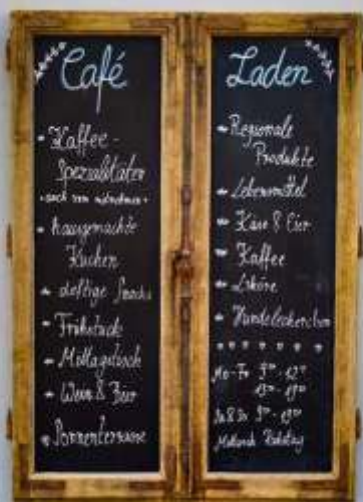 Café
Kaffee-
Spezialitäten
auch zum mitnehmen
hausgemachte
Kuchen
deftige Snacks
Frühstück
Mittagstisch
Wein & Bier
Sonnenterrasse
Laden
Regionale
Produkte
Lebensmittel
Käse & Eier
Kaffee
Liköre
Hundeleckerchen
Mo-Fr
Mittwoch Ruhetag